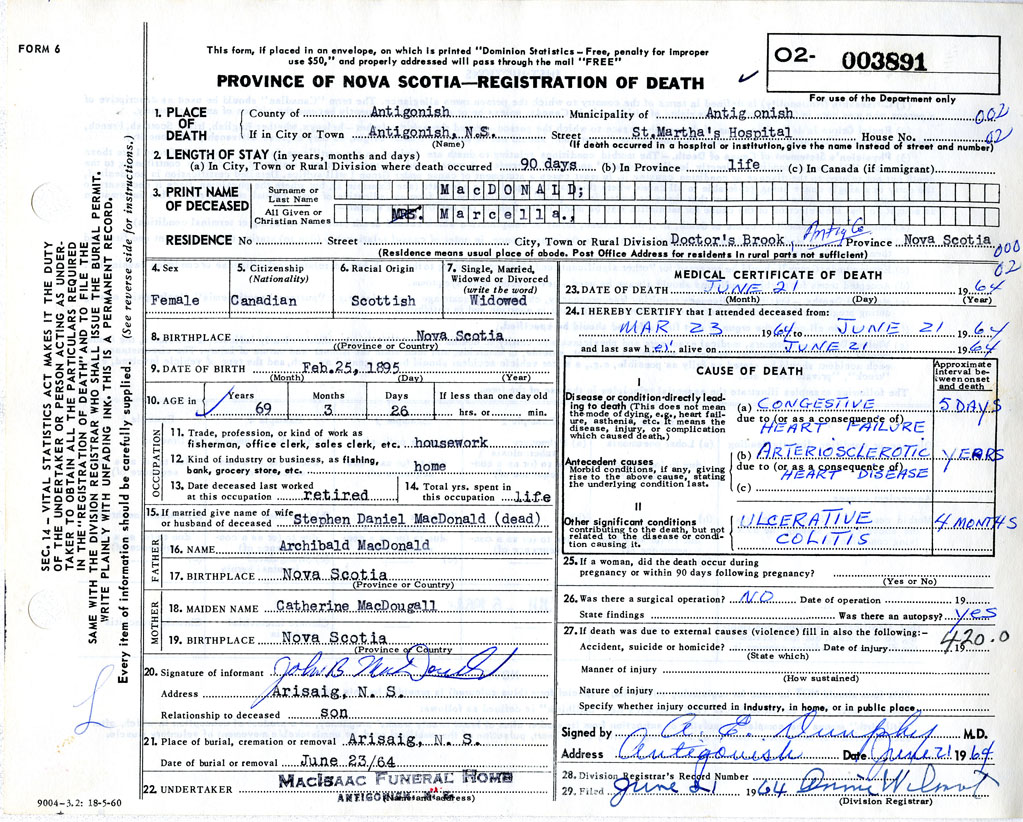 FORM 6
This form, if placed in an envelope, on which is printed "Dominion Statistics – Free, penalty for improper
use $50," and properly addressed will pass through the mail "FREE"
PROVINCE OF NOVA SCOTIA—REGISTRATION OF DEATH
O2- 003891
For use of the Department only
1. PLACE OF DEATH
County of Antigonish Municipality of Antig onish 002
If in City or Town Antigonish, N.S. Street St.Martha's Hospital House No. 02
(Name) (If death occurred in a hospital or institution, give the name instead of street and number)
2. LENGTH OF STAY (in years, months and days)
(a) In City, Town or Rural Division where death occurred 90 days (b) In Province life (c) In Canada (if immigrant)
3. PRINT NAME OF DECEASED
Surname or Last Name MacDONALD;
All Given or Christian Names MRS. Marcella.,
RESIDENCE No Street City, Town or Rural Division Doctor's Brook, Antig Co Province Nova Scotia 000
(Residence means usual place of abode. Post Office Address for residents in rural parts not sufficient) 02
4. Sex
Female
5. Citizenship (Nationality)
Canadian
6. Racial Origin
Scottish
7. Single, Married, Widowed or Divorced (write the word)
Widowed
8. BIRTHPLACE Nova Scotia
((Province or Country)
9. DATE OF BIRTH Feb.25, 1895
(Month) (Day) (Year)
10. AGE in Years Months Days If less than one day old
69 3 26 hrs. or min.
OCCUPATION
11. Trade, profession, or kind of work as
fisherman, office clerk, sales clerk, etc. housework
12. Kind of industry or business, as fishing,
bank, grocery store, etc. home
13. Date deceased last worked
at this occupation retired
14. Total yrs. spent in
this occupation life
15. If married give name of wife
or husband of deceased Stephen Daniel MacDonald (dead)
FATHER
16. NAME Archibald MacDonald
17. BIRTHPLACE Nova Scotia
(Province or Country)
MOTHER
18. MAIDEN NAME Catherine MacDougall
19. BIRTHPLACE Nova Scotia
(Province or Country)
20. Signature of informant John B MacDonald
Address Arisaig, N. S.
Relationship to deceased son
21. Place of burial, cremation or removal Arisaig, N. S.
Date of burial or removal June 23/64
22. UNDERTAKER MACISAAC FUNERAL HOME
ANTIGONISH, N.S.
(Name and address)
MEDICAL CERTIFICATE OF DEATH
23. DATE OF DEATH JUNE 21 1964
(Month) (Day) (Year)
24. I HEREBY CERTIFY that I attended deceased from:
MAR 23 1964 to JUNE 21 1964
and last saw her alive on JUNE 21 1964
CAUSE OF DEATH
Approximate interval between onset and death
I
Disease or condition directly leading to death (This does not mean the mode of dying, e.g., heart failure, asthenia, etc. It means the disease, injury, or complication which caused death.)
(a) CONGESTIVE 5 DAYS
due to (or as a consequence of)
HEART FAILURE
Antecedent causes
Morbid conditions, if any, giving rise to the above cause, stating the underlying condition last.
(b) ARTERIOSCLEROTIC YEARS
due to (or as a consequence of)
HEART DISEASE
(c)
II
Other significant conditions
contributing to the death, but not related to the disease or condition causing it.
ULCERATIVE 4 MONTHS
COLITIS
25. If a woman, did the death occur during
pregnancy or within 90 days following pregnancy?
(Yes or No)
26. Was there a surgical operation? NO Date of operation 19
State findings Was there an autopsy? yes
27. If death was due to external causes (violence) fill in also the following:– 420.0
Accident, suicide or homicide? Date of injury 19
(State which)
Manner of injury
(How sustained)
Nature of injury
Specify whether injury occurred in industry, in home, or in public place
Signed by A. E. Dunphy M.D.
Address Antigonish Date June 21 1964
28. Division Registrar's Record Number
29. Filed June 21 1964 Annie Wilmot
(Division Registrar)
SEC. 14 – VITAL STATISTICS ACT MAKES IT THE DUTY
OF THE UNDERTAKER OR PERSON ACTING AS UNDER-
TAKER TO OBTAIN ALL THE PARTICULARS REQUIRED
IN THE "REGISTRATION OF DEATH" AND TO FILE THE
SAME WITH THE DIVISION REGISTRAR WHO SHALL ISSUE THE BURIAL PERMIT.
WRITE PLAINLY WITH UNFADING INK. THIS IS A PERMANENT RECORD.
Every item of information should be carefully supplied. (See reverse side for instructions.)
9004–3.2: 18-5-60